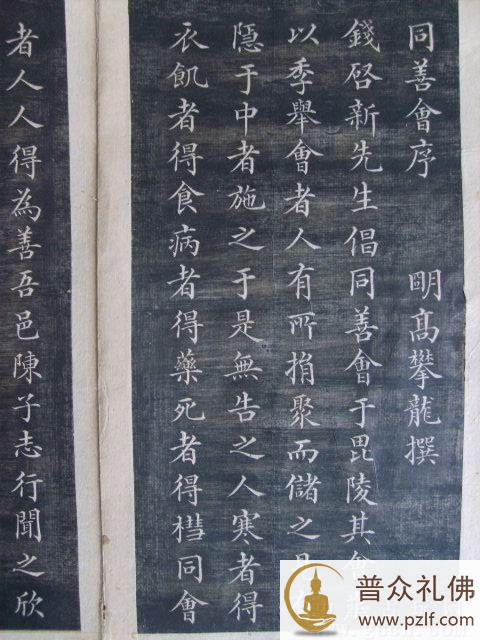 同善會序　眀髙攀龍撰
錢啓新先生倡同善會于毘陵其會
以季舉會者人有所捐聚而儲之
隱于中者施之于是無告之人寒者得
衣飢者得食病者得藥死者得槥同會
者人人得為善吾邑陳子志行聞之欣
普众礼佛
www.pzlf.com